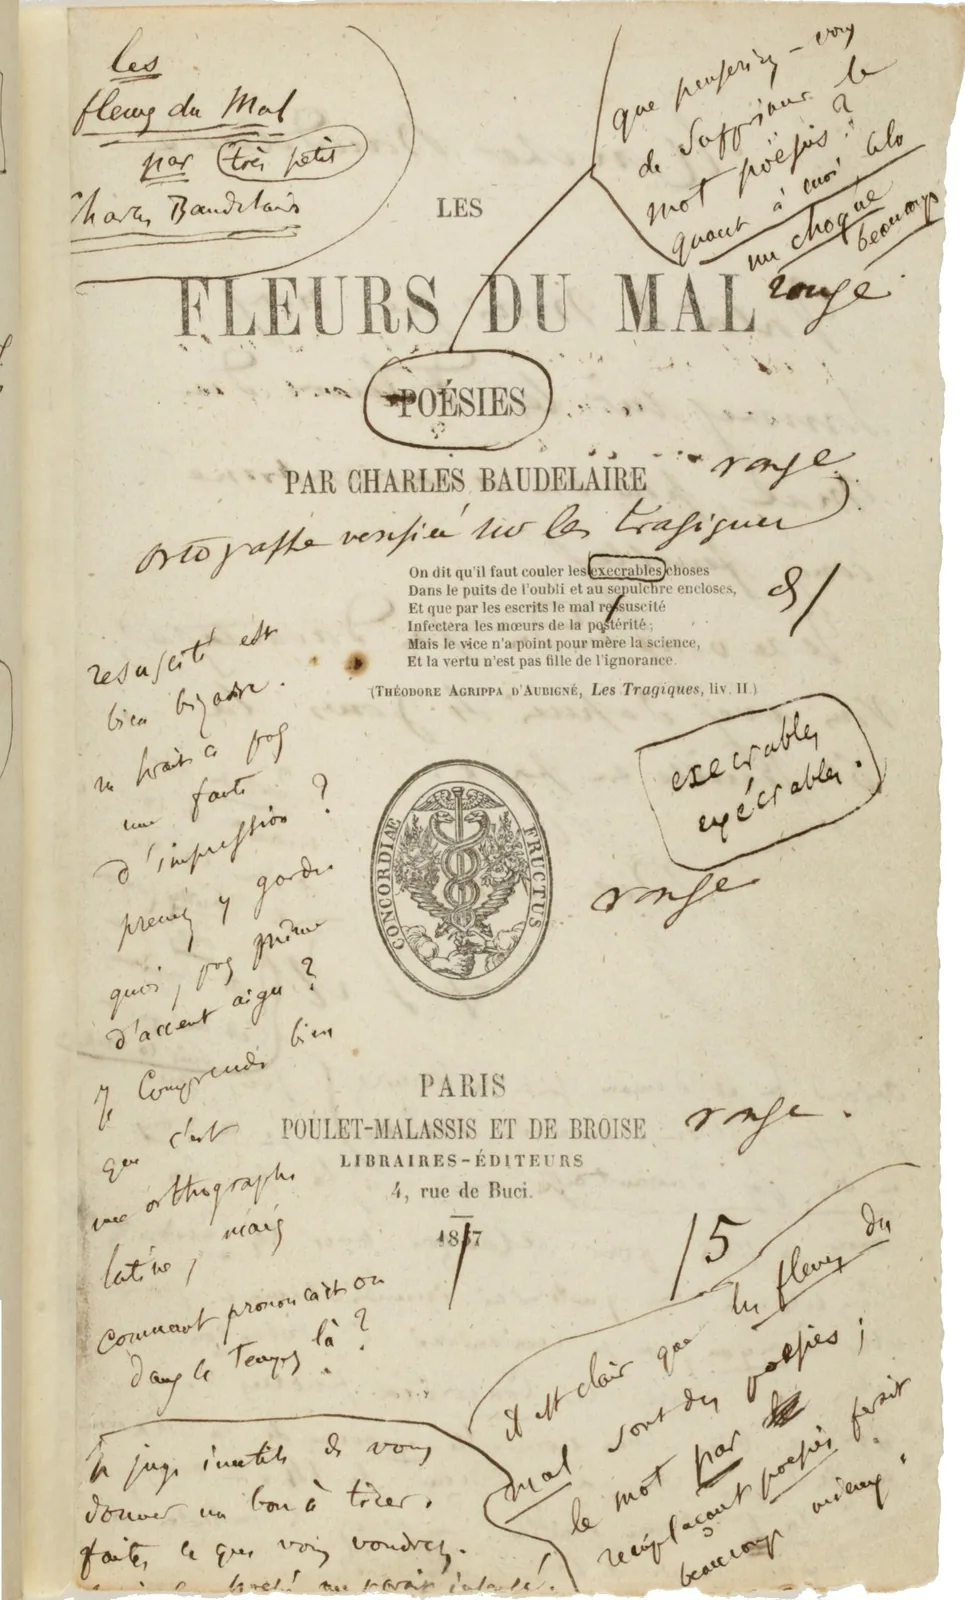 les
fleurs du Mal
par très petit
Charles Baudelaire
que penseriez-vous
de supprimer le
mot poësies?
quant à moi, cela
me choque
beaucoup
LES
FLEURS DU MAL
rouge
POÉSIES
PAR CHARLES BAUDELAIRE
rouge
ortografhe verifiée sur les tragiques
On dit qu'il faut couler les execrables choses
Dans le puits de l'oubli et au sepulchre encloses,
Et que par les escrits le mal resuscité
Infectera les mœurs de la postérité;
Mais le vice n'a point pour mère la science,
Et la vertu n'est pas fille de l'ignorance.
(THÉODORE AGRIPPA D'AUBIGNÉ, Les Tragiques, liv. II.)
resuscité est
bien bizarre.
ne serait-ce pas
une faute
d'impression?
prenez y garde.
quoi, pas même
d'accent aigu?
Je comprends bien
que c'est
une orthographe
latine, mais
comment prononçait-on
dans ce temps là?
execrables
exécrables.
rouge
CONCORDIAE FRUCTUS
PARIS
POULET-MALASSIS ET DE BROISE
rouge.
LIBRAIRES-ÉDITEURS
4, rue de Buci.
1857
/5
il est clair que les fleurs du
mal sont des poësies;
le mot par
remplaçant poësies ferait
beaucoup mieux.
Je juge inutile de vous
donner un bon à tirer.
faites ce que vous voudrez.